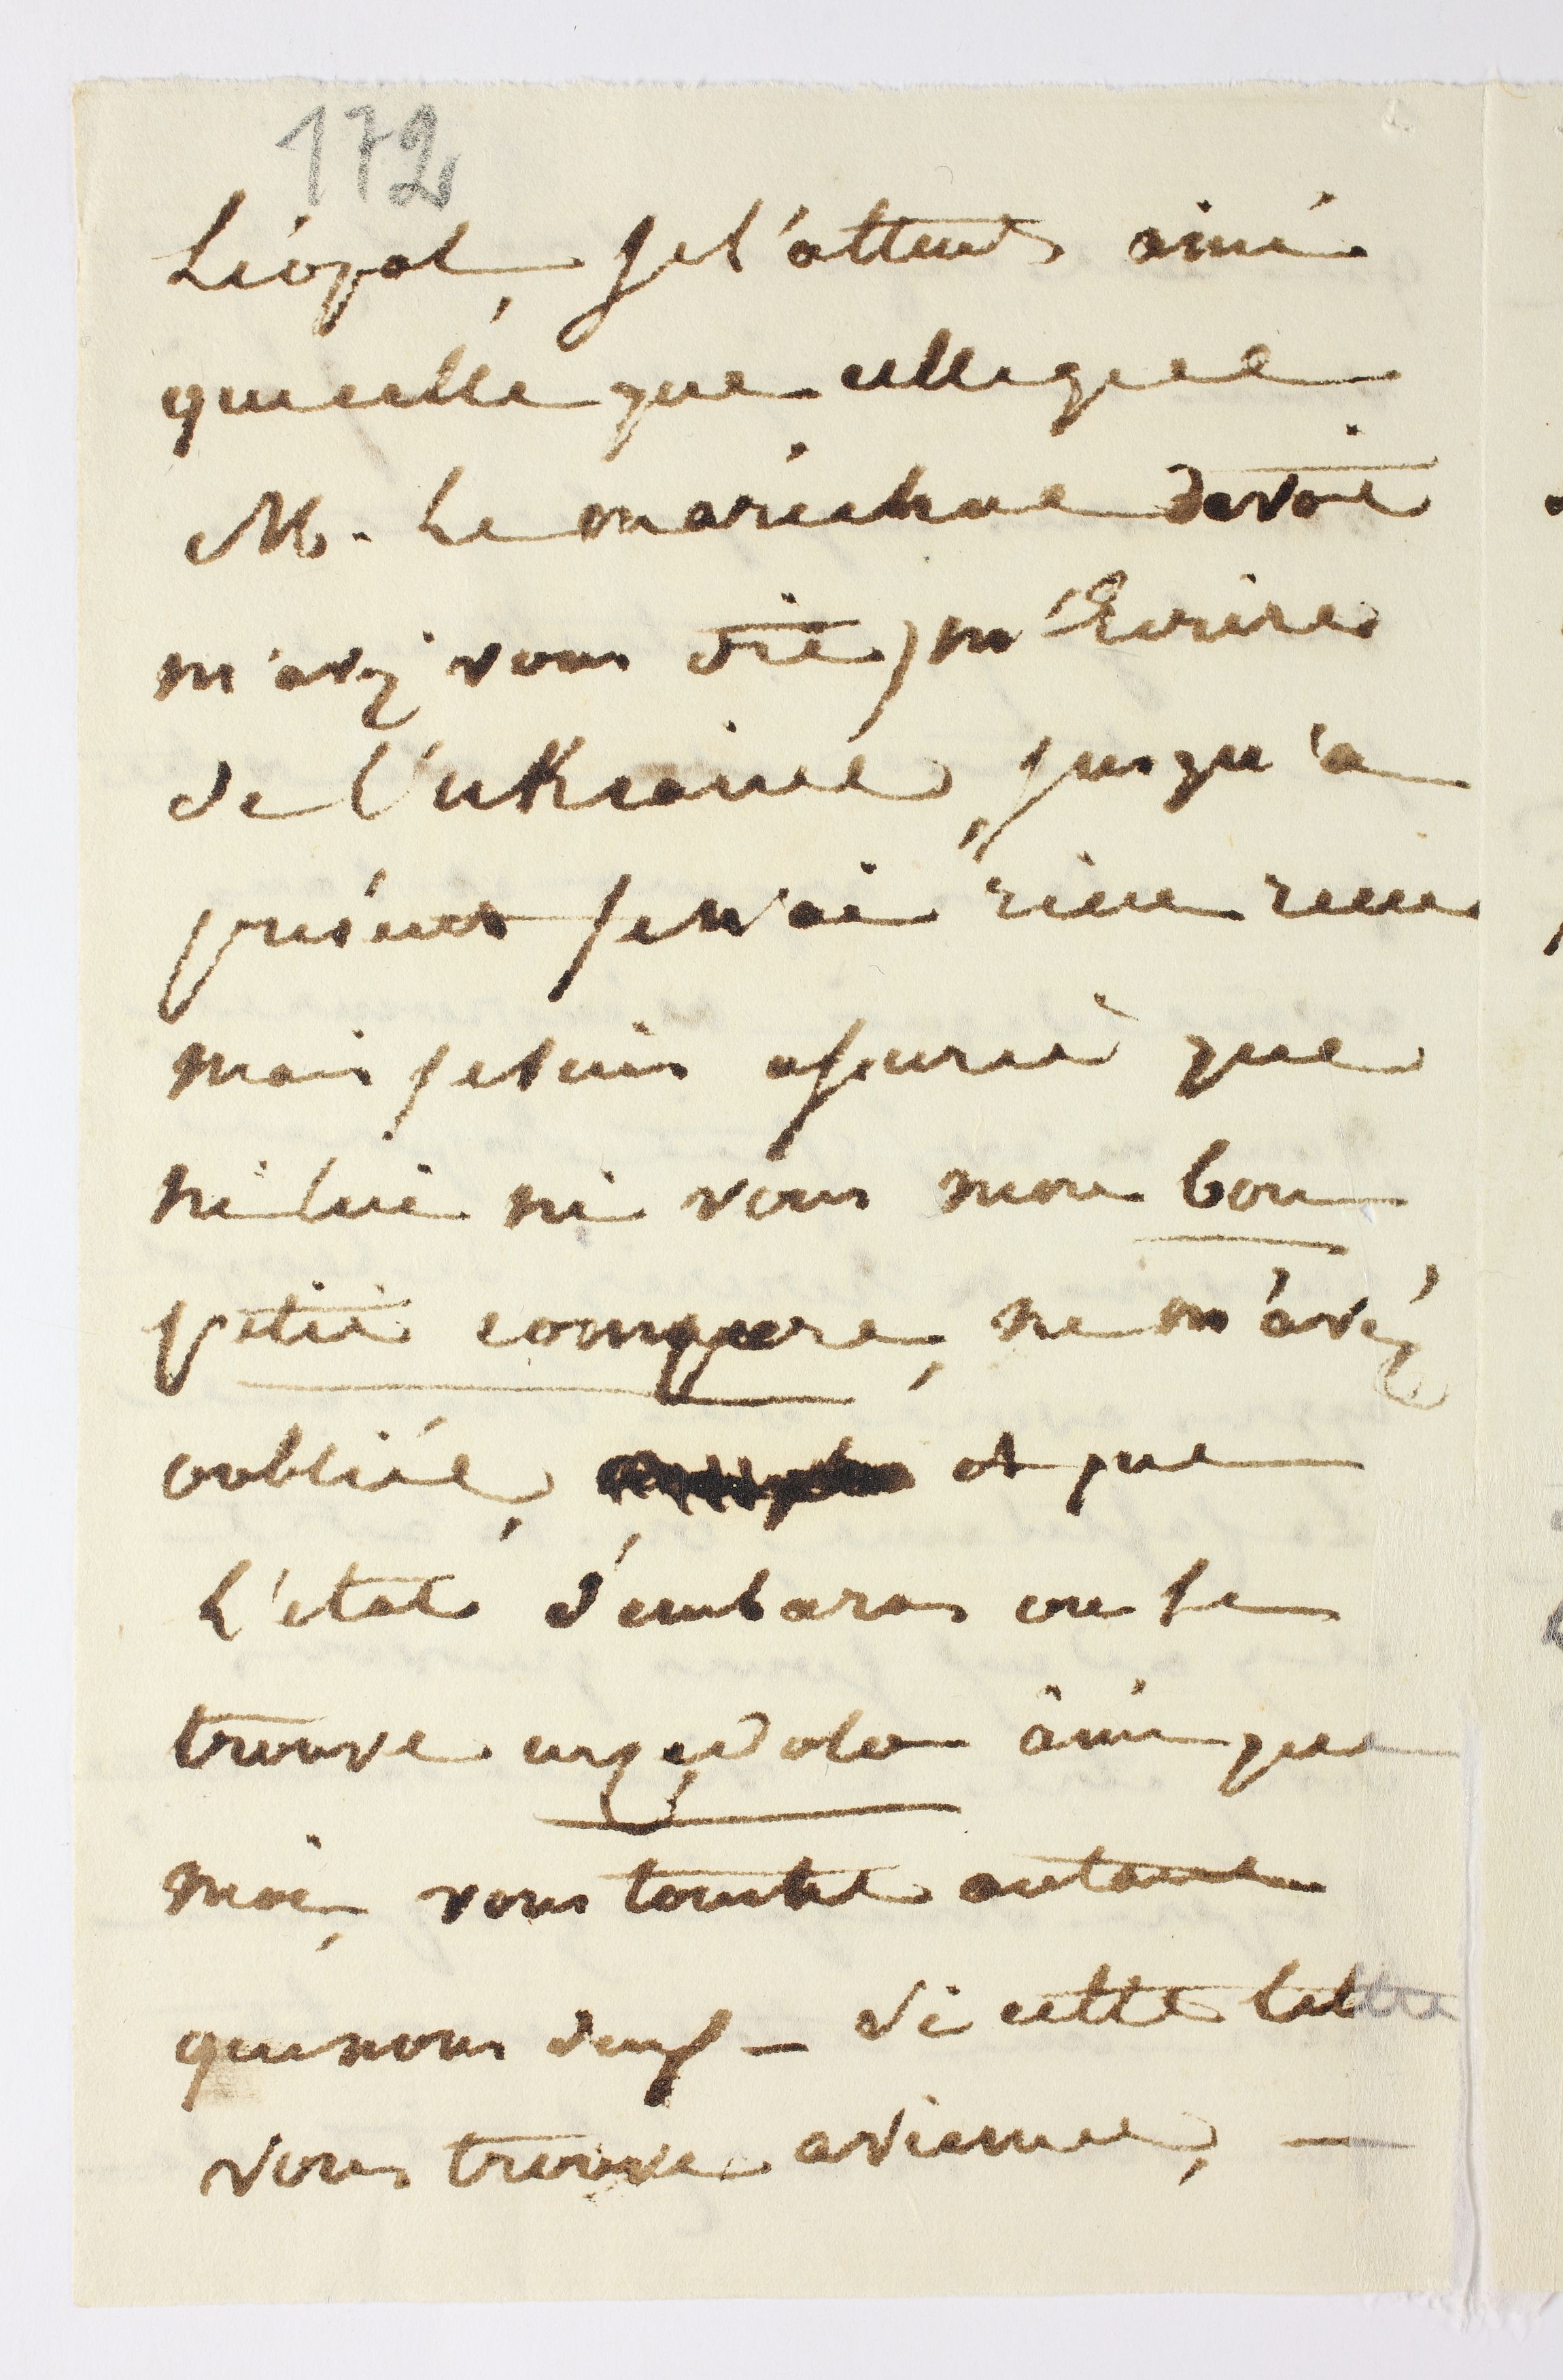 172
Léopol, je l'attend ainsi
que celle que celle que
M. Le maréchal devoit
m'avez vous dit, m'Ecrire
de l'ukraine, jusqu'a
présent je n'ai rien recu
mais je suis assurée que
ni lui ni vous mon bon
petit compere, ne m'avez
oubliée, et que
L'etat d'embaras ou se
trouve ainsi que
moi, vous touche autant
que nous deux - Si cette lettre
vous trouve a vienne, -